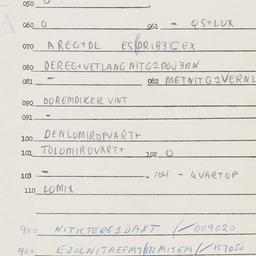 050 0
060 0 061 - QS+LUX
070 AREG+DL ES/DRIB3CEX
080 DEREG+VETLANG NITG2DOW3RN
081 - 082 METNITG2VERNL
090 DOREMDIKER VINT
091 -
100 DENLOMIROPVART+
101 TOLOMIROVART+ 102 0
103 - 104 - QVARTOP
110 LOMIX
900 NITKTERG2DAXT /-009020
900 EZILNITREFM7/72MITEM /-157050